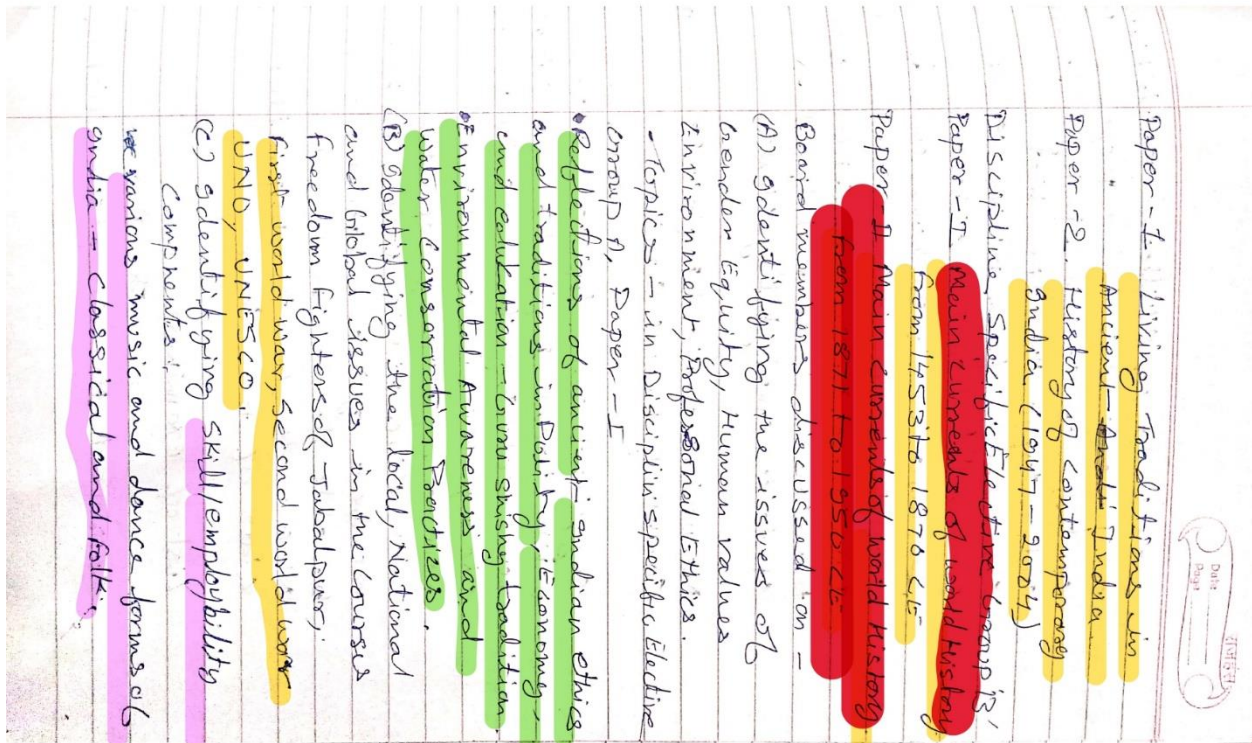 Date
Page
Paper-1. Living Traditions in
Ancient India
Paper-2. History of Contemporary
India (1947-2004)
Discipline Specific Elective Group 'B'
Paper-I Main currents of world History
from 1453 to 1870 CE-
Paper-II Main currents of world History
from 1871 to 1950 CE-
Board members discussed on -
(A) Identifying the issues of
Gender Equity, Human values
Environment, Professional Ethics.
- Topics - in Disciplin specific Elective
Group A, Paper-I
• Reflections of ancient Indian ethics
and traditions in Polity, Economy,
and education - Guru shishy tradition
• Environmental Awareness and
water Conservation Practices.
(B) Identifying the local, National
and Global issues in the Courses
freedom fighters of Jabalpur,
First world war, Second world war
UNO, UNESCO.
(C) Identifying skill/employbility
Compnents:
various music and dance forms of
India - Classical and folk.